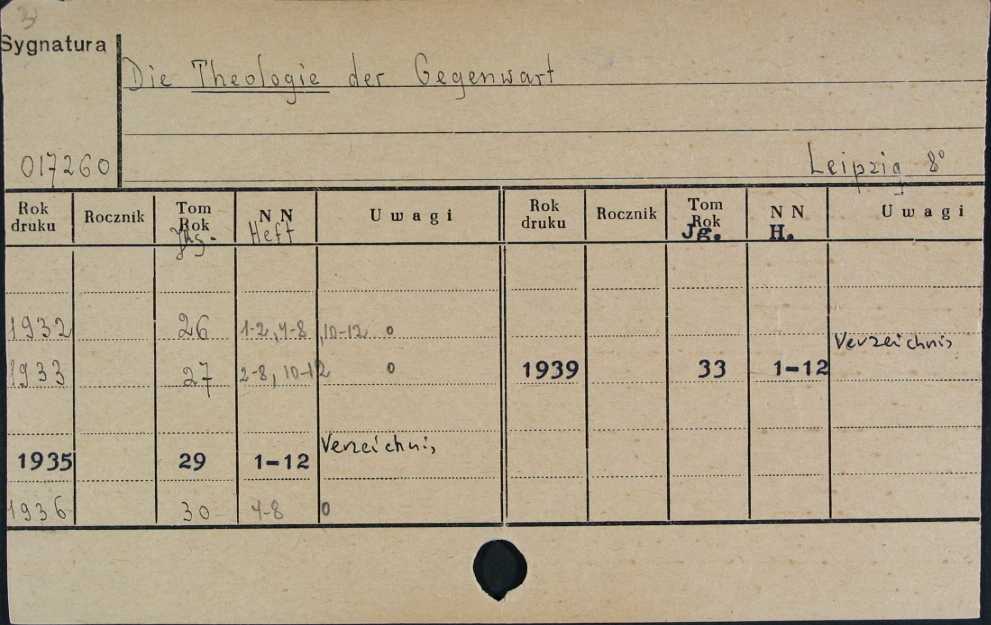 3
Sygnatura
Die Theologie der Gegenwart
017260
Leipzig 8°
Rok druku Rocznik Tom Rok Jhg. N N Heft Uwagi Rok druku Rocznik Tom Rok Jg. N N H. Uwagi
1932 26 1-2, 4-8, 10-12 o
1933 27 2-8, 10-12 o
1935 29 1-12 Verzeichnis
1936 30 4-8 o
1939 33 1-12 Verzeichnis